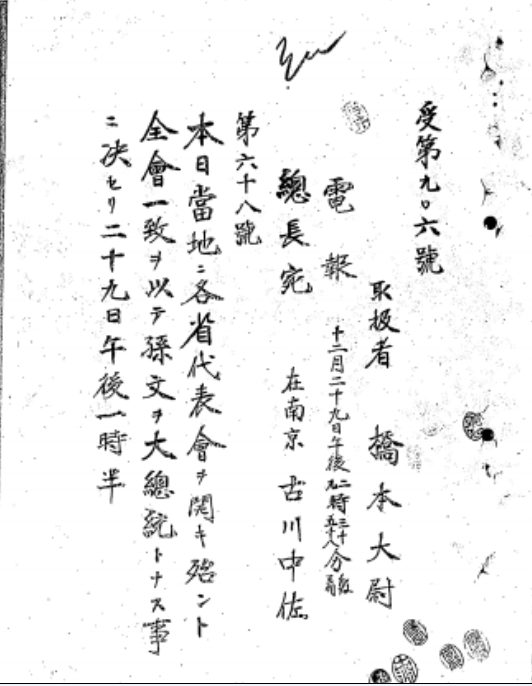 受第九〇六號
取扱者 橋本大尉
電報 十二月二十九日午後
總長宛 在南京 古川中佐
第六十八號
本日當地ニ各省代表會ヲ開キ殆ント
全會一致ヲ以テ孫文ヲ大總統トナス事
ニ決セリ二十九日午後一時半